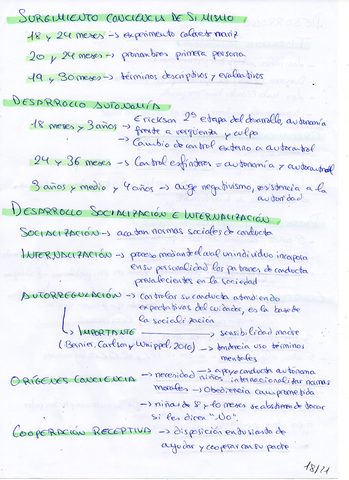 SURGIMIENTO CONCIENCIA DE SI MISMO
18 y 24 meses -> experimento colorete nariz
20 y 24 meses -> pronombres primera persona
19 y 30 meses -> términos descriptivos y evaluativos
DESARROLLO AUTONOMÍA
18 meses y 3 años -> Erickson 2ª etapa del desarrollo, autonomía
frente a vergüenza y culpa
-> Cambio de control externo a autocontrol
24 y 36 meses -> Control esfínteres = autonomía y autocontrol
3 años y medio y 4 años -> auge negativismo, resistencia a la
autoridad
DESARROLLO SOCIALIZACIÓN E INTERNALIZACIÓN
SOCIALIZACIÓN -> acatan normas sociales de conducta
INTERNALIZACIÓN -> proceso mediante el cual un individuo incorpora
en su personalidad los patrones de conducta
prevalecientes en la sociedad
AUTORREGULACIÓN -> controlar su conducta atendiendo
expectativas del cuidador, es la base de
la socialización
IMPORTANTE -> sensibilidad madre
(Bernier, Carlson y Whipple, 2010) -> tendencia uso términos
mentales
-> apoyo conducta autónoma
ORÍGENES CONCIENCIA -> necesidad niños internacionalizar normas
morales -> Obediencia comprometida
-> niños de 8 y 10 meses se abstienen de tocar
si les dicen "No".
COOPERACIÓN RECEPTIVA -> disposición entusiasta de
ayudar y cooperar con su padre
18/11